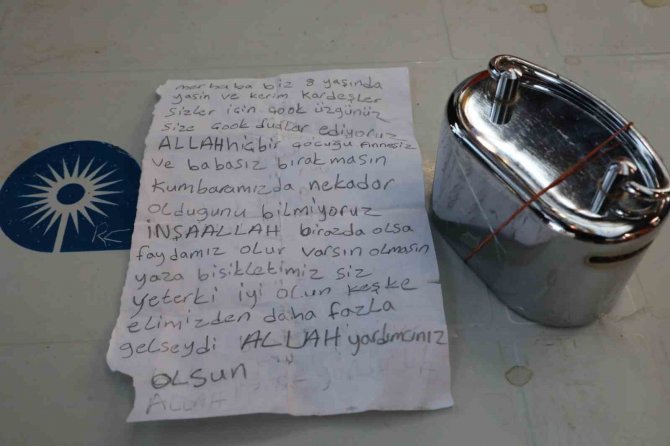 merhaba biz 8 yaşında
yasin ve kerim kardeşler
sizler için çook üzgünüz
size çook dualar ediyoruz
ALLAH hiçbir çocuğu Annesiz
ve babasız bırakmasın
kumbaramızda nekadar
olduğunu bilmiyoruz
İNŞAALLAH birazda olsa
faydamız olur varsın olmasın
yaza bisikletimiz siz
yeterki iyi olun keşke
elimizden daha fazla
gelseydi ALLAH yardımcınız
OLSUN
ALLAH